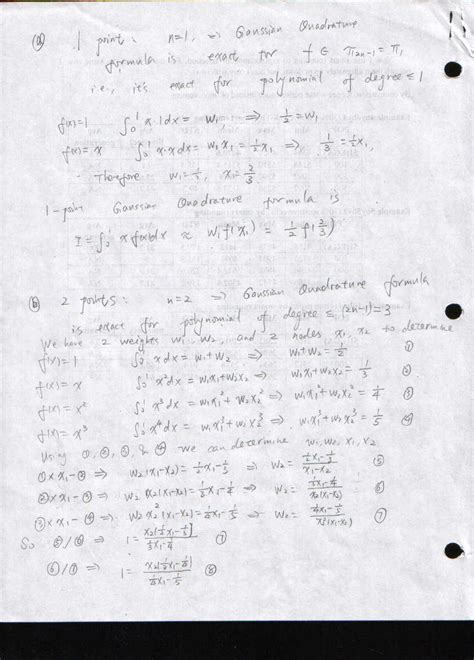 (a) 1 point: n=1, ⇒ Gaussian Quadrature
formula is exact for f ∈ π₂ₙ₋₁ = π₁
i.e., it's exact for polynomial of degree ≤ 1
f(x)=1 ∫₀¹ x·1dx = w₁ ⇒ 1/2 = w₁
f(x)=x ∫₀¹ x·xdx = w₁x₁ = 1/2 x₁ ⇒ 1/3 = 1/2 x₁,
Therefore w₁=1/2, x₁=2/3
1-point Gaussian Quadrature formula is
I = ∫₀¹ x f(x)dx ≈ w₁f(x₁) = 1/2 f(2/3)
(b) 2 points: n=2 ⇒ Gaussian Quadrature formula
is exact for polynomial of degree ≤ (2n-1)=3
We have 2 weights w₁, w₂, and 2 nodes x₁, x₂ to determine
f(x)=1 ∫₀¹ xdx = w₁+w₂ ⇒ w₁+w₂ = 1/2 ①
f(x)=x ∫₀¹ x²dx = w₁x₁+w₂x₂ ⇒ w₁x₁+w₂x₂ = 1/3 ②
f(x)=x² ∫₀¹ x³dx = w₁x₁²+w₂x₂² ⇒ w₁x₁²+w₂x₂² = 1/4 ③
f(x)=x³ ∫₀¹ x⁴dx = w₁x₁³+w₂x₂³ ⇒ w₁x₁³+w₂x₂³ = 1/5 ④
Using ①, ②, ③, & ④ we can determine w₁, w₂, x₁, x₂
①×x₁-② ⇒ w₂(x₁-x₂) = 1/2 x₁-1/3 ⇒ w₂ = (1/2 x₁-1/3)/(x₁-x₂) ⑤
②×x₁-③ ⇒ w₂x₂(x₁-x₂) = 1/3 x₁-1/4 ⇒ w₂ = (1/3 x₁-1/4)/(x₂(x₁-x₂)) ⑥
③×x₁-④ ⇒ w₂x₂²(x₁-x₂) = 1/4 x₁-1/5 ⇒ w₂ = (1/4 x₁-1/5)/(x₂²(x₁-x₂)) ⑦
So ⑤/⑥ ⇒ 1 = x₂(1/2 x₁-1/3)/(1/3 x₁-1/4) ⑦
⑥/⑦ ⇒ 1 = x₂(1/3 x₁-1/4)/(1/4 x₁-1/5) ⑧